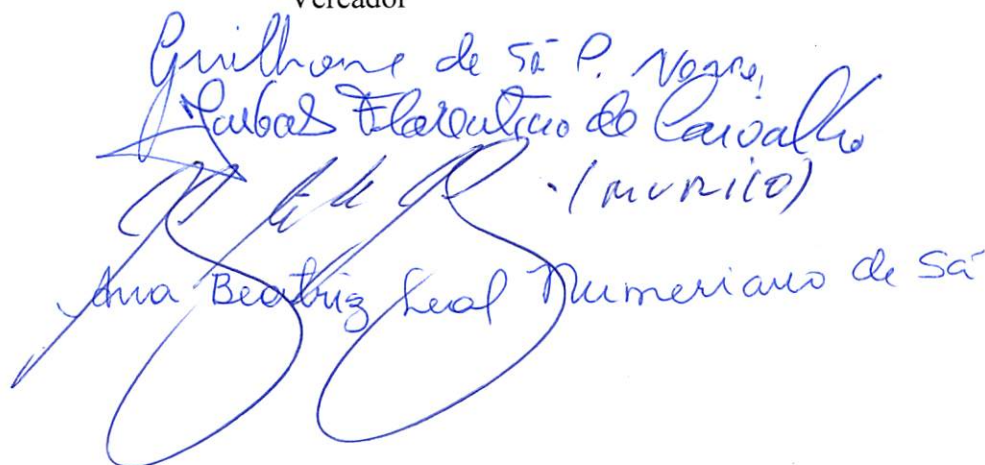 Vereador
Guilherme de Sá P. Novaes
Jarbas Florentino de Carvalho
(MURILO)
Ana Beatriz Leal Numeriano de Sá